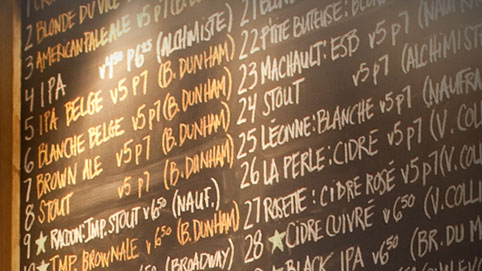 2 BLONDE DU VICE V5 P7
3 AMERICAN PALE ALE V5 P7 (B. DUNHAM)
4 IPA V4.50 P6.25 (ALCHIMISTE)
5 IPA BELGE V5 P7 (B. DUNHAM)
6 BLANCHE BELGE V5 P7 (B. DUNHAM)
7 BROWN ALE V5 P7 (B. DUNHAM)
8 STOUT V5 P7 (B. DUNHAM)
9 ★ RACOON: IMP. STOUT V6.50 (NAUF.)
★ IMP. BROWNALE V6.50 (B. DUNHAM)
(BROADWAY)
21 BLONDE
22 P'TITE BUTEUSE: BLONDE
23 MACHAULT: ESB V5 P7 (NAUFRA
24 STOUT V5 P7 (ALCHIMIST
25 LÉONNE: BLANCHE V5 P7 (NAUFRA
26 LA PERLE: CIDRE V5 P7 (V. COLL
27 ROSETTE: CIDRE ROSE V5 P7 (V. COLLI
28 ★ CIDRE CUIVRÉ V6.50 (V. COLLI
BLACK IPA V6.50 (BR. DU M